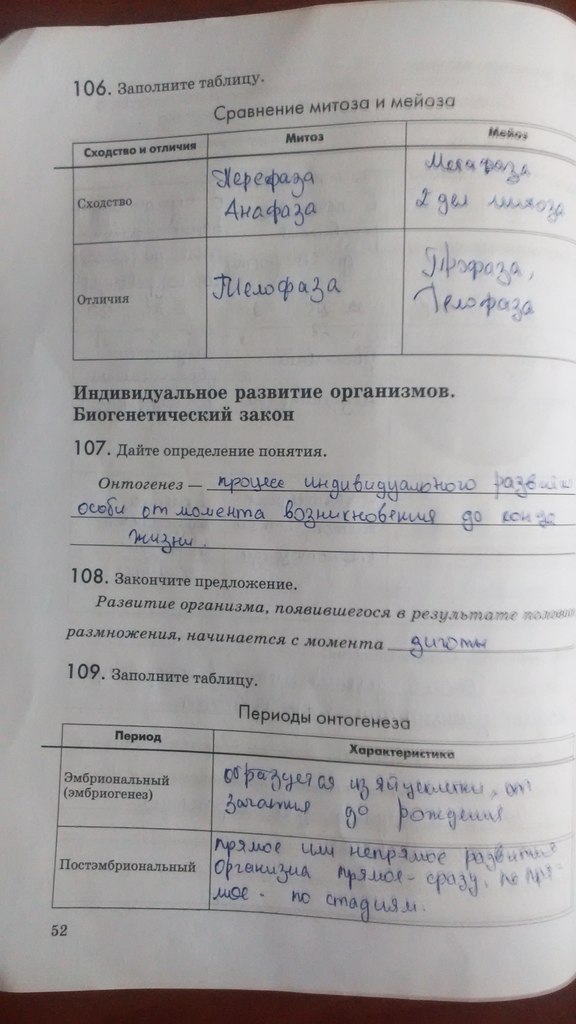 106. Заполните таблицу.
Сравнение митоза и мейоза
Сходство и отличия Митоз Мейоз
Сходство
Перефаза
Анафаза
Метафаза
2 дел
Отличия
Телофаза
Профаза,
Телофаза
Индивидуальное развитие организмов.
Биогенетический закон
107. Дайте определение понятия.
Онтогенез — процесс индивидуального
особи от момента возникновения до конца
жизни.
108. Закончите предложение.
Развитие организма, появившегося в результате
размножения, начинается с момента зиготы
109. Заполните таблицу.
Периоды онтогенеза
Период Характеристика
Эмбриональный
(эмбриогенез)
образуется из яйцеклетки, от
зачатия до рождения
Постэмбриональный
прямое или непрямое развитие
Организма прямое - сразу,
мое - по стадиям.
52